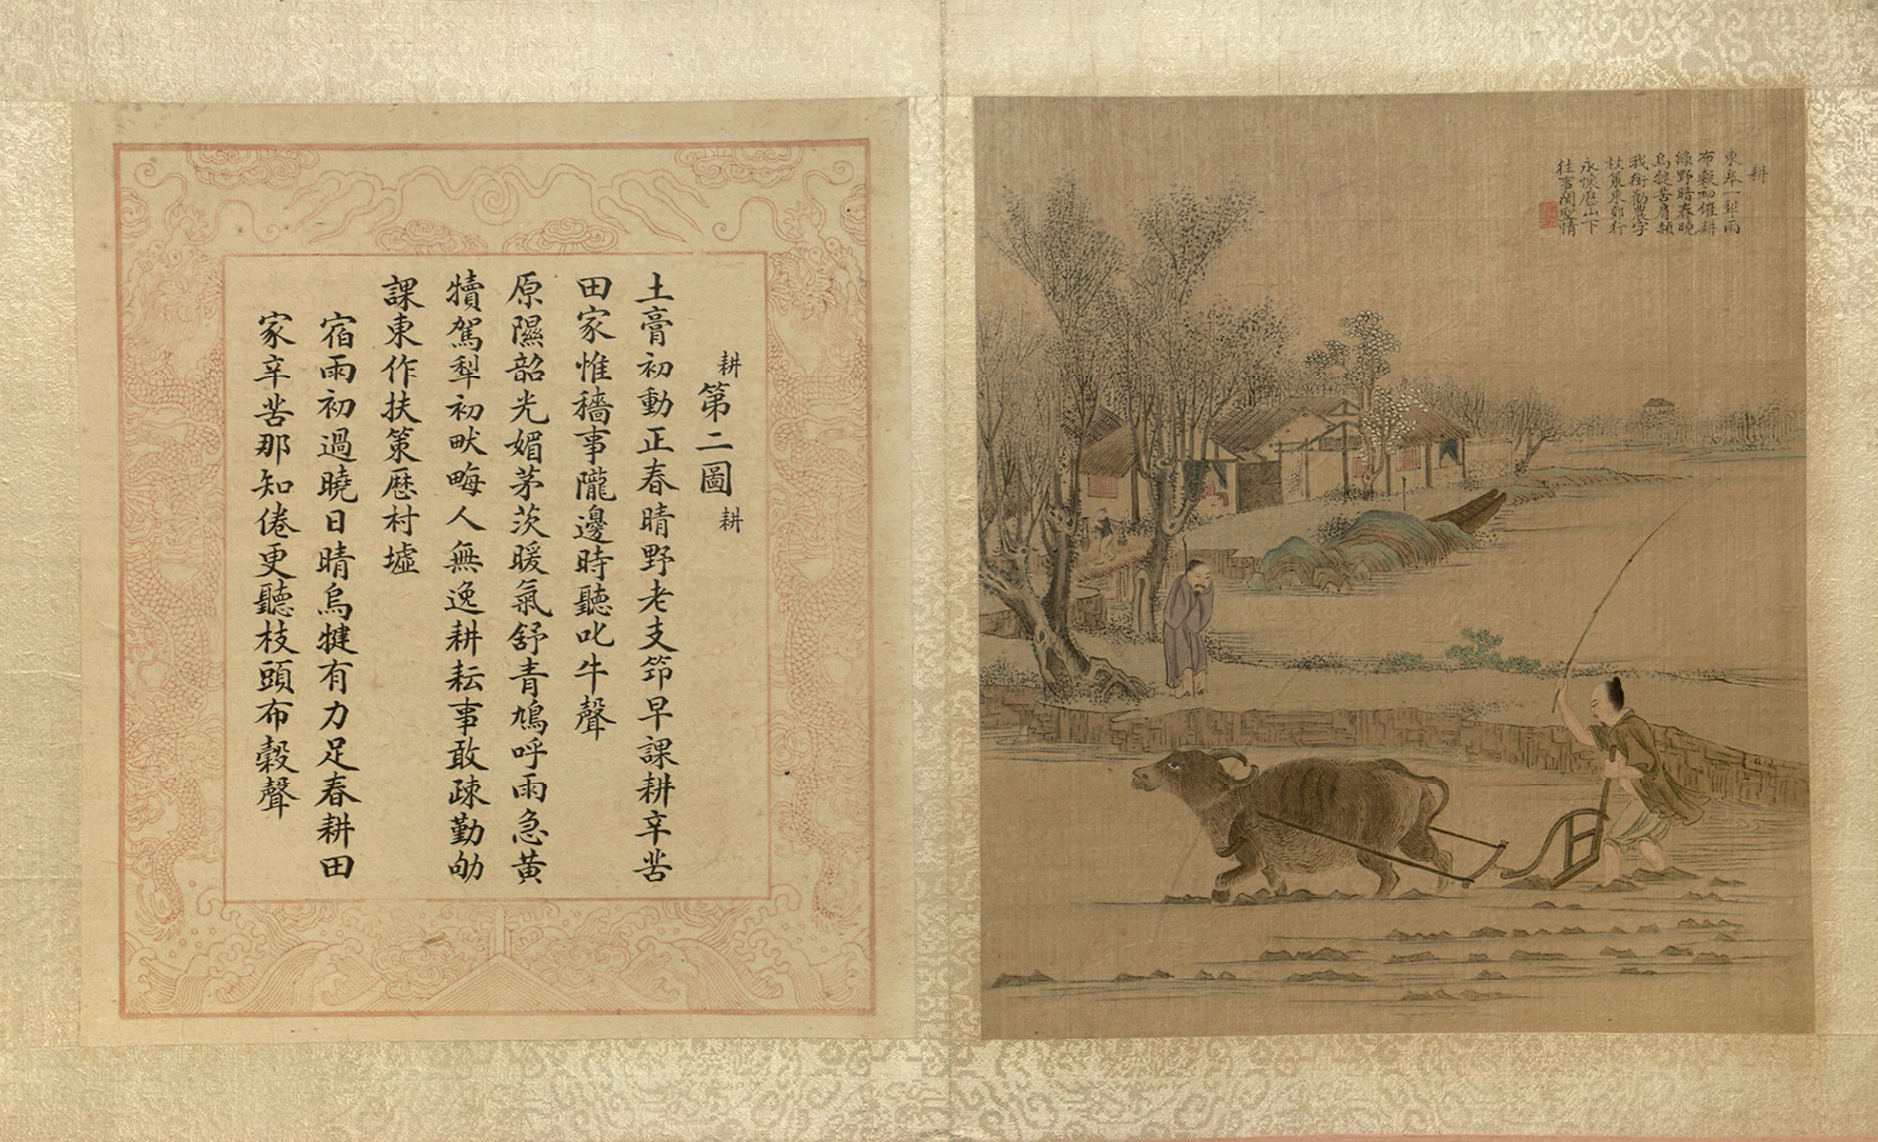 耕
東皋一犁雨
布穀初催耕
綠野暗春曉
烏犍苦肩頳
我銜勸農字
杖策東郊行
永懷厯山下
往事關聖情
耕第二圖 耕
土膏初動正春晴野老支笻早課耕辛苦
田家惟穡事隴邊時聽叱牛聲
原隰韶光媚茅茨暖氣舒青鳩呼雨急黃
犢駕犁初畎畮人無逸耕耘事敢疎勤劬
課東作扶策厯村墟
宿雨初過曉日晴烏犍有力足春耕田
家辛苦那知倦更聽枝頭布穀聲